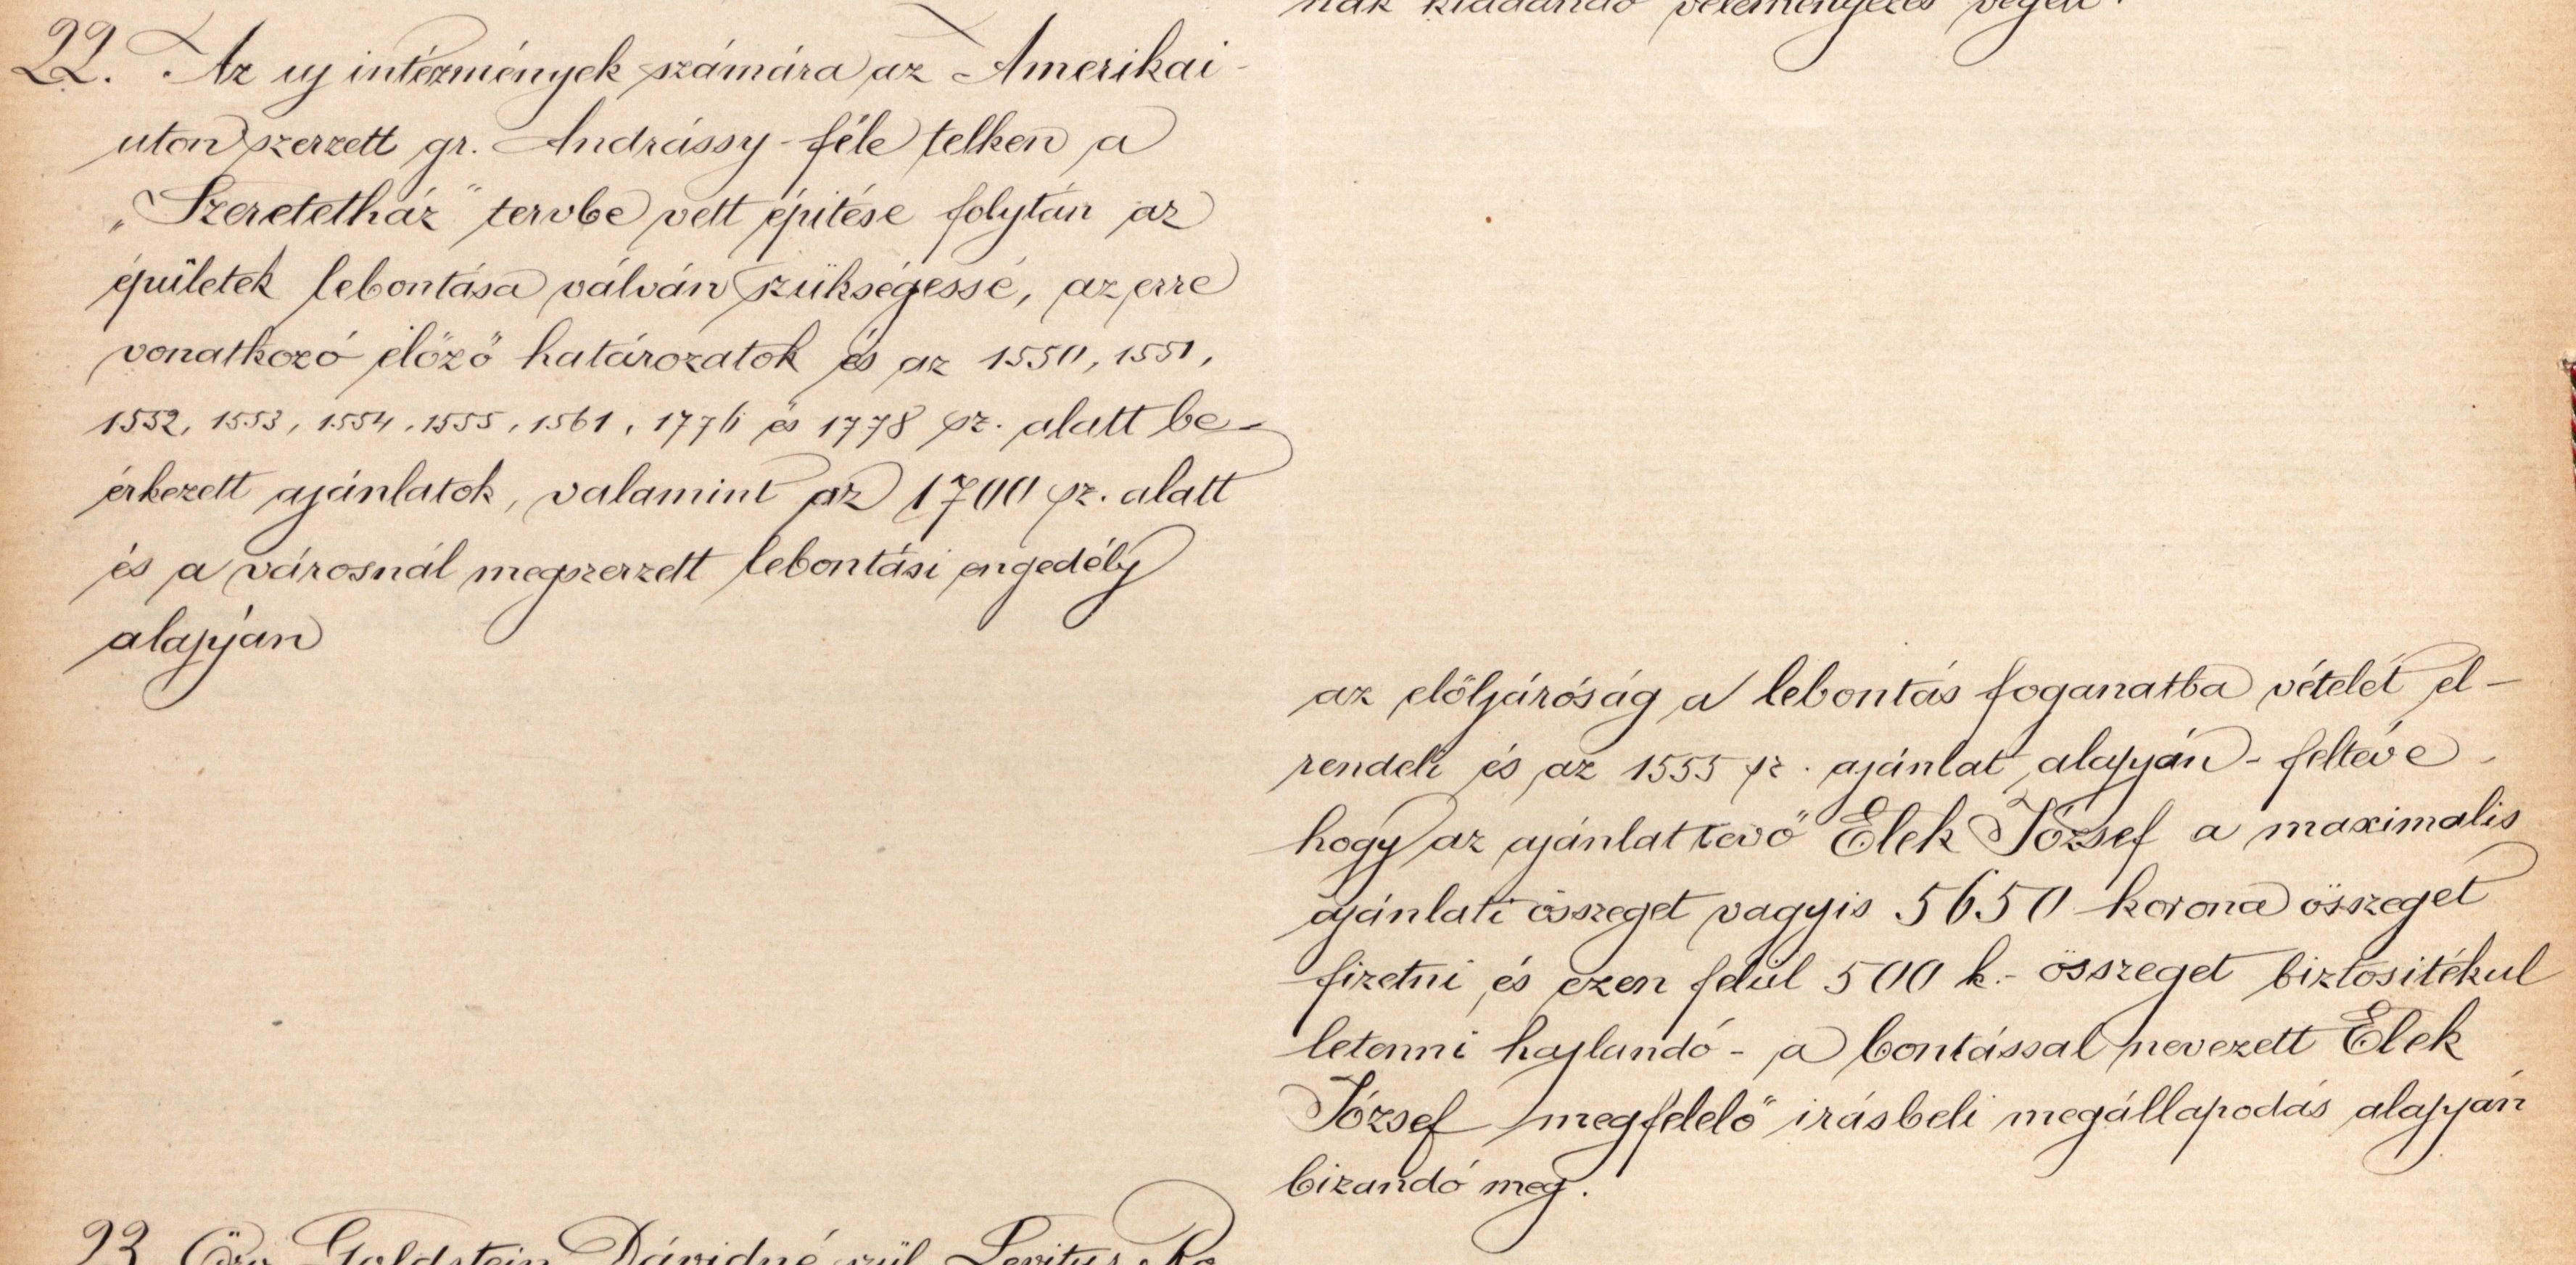 nak kiadandó véleményezés végett.
22. Az uj intézmények számára az Amerikai-
uton szerzett gr. Andrássy-féle telken a
„Szeretetház" tervbe vett épitése folytán az
épületek lebontása válván szükségessé, az erre
vonatkozó előző határozatok és az 1550, 1551,
1552, 1553, 1554, 1555, 1561, 1776 és 1778 sz. alatt be-
érkezett ajánlatok, valamint az 1700 sz. alatt
és a városnál megszerzett lebontási engedély
alapján
az előljáróság a lebontás foganatba vételét el-
rendeli és az 1555 sz. ajánlat alapján - feltéve
hogy az ajánlattevő Elek József a maximalis
ajánlati összeget vagyis 5650 korona összeget
fizetni és ezen felül 500 k.- összeget biztositékul
letenni hajlandó - a bontással nevezett Elek
József megfelelő irásbeli megállapodás alapján
bizandó meg.
23 Özv. Goldstein Dávidné szül. Levitus Ro